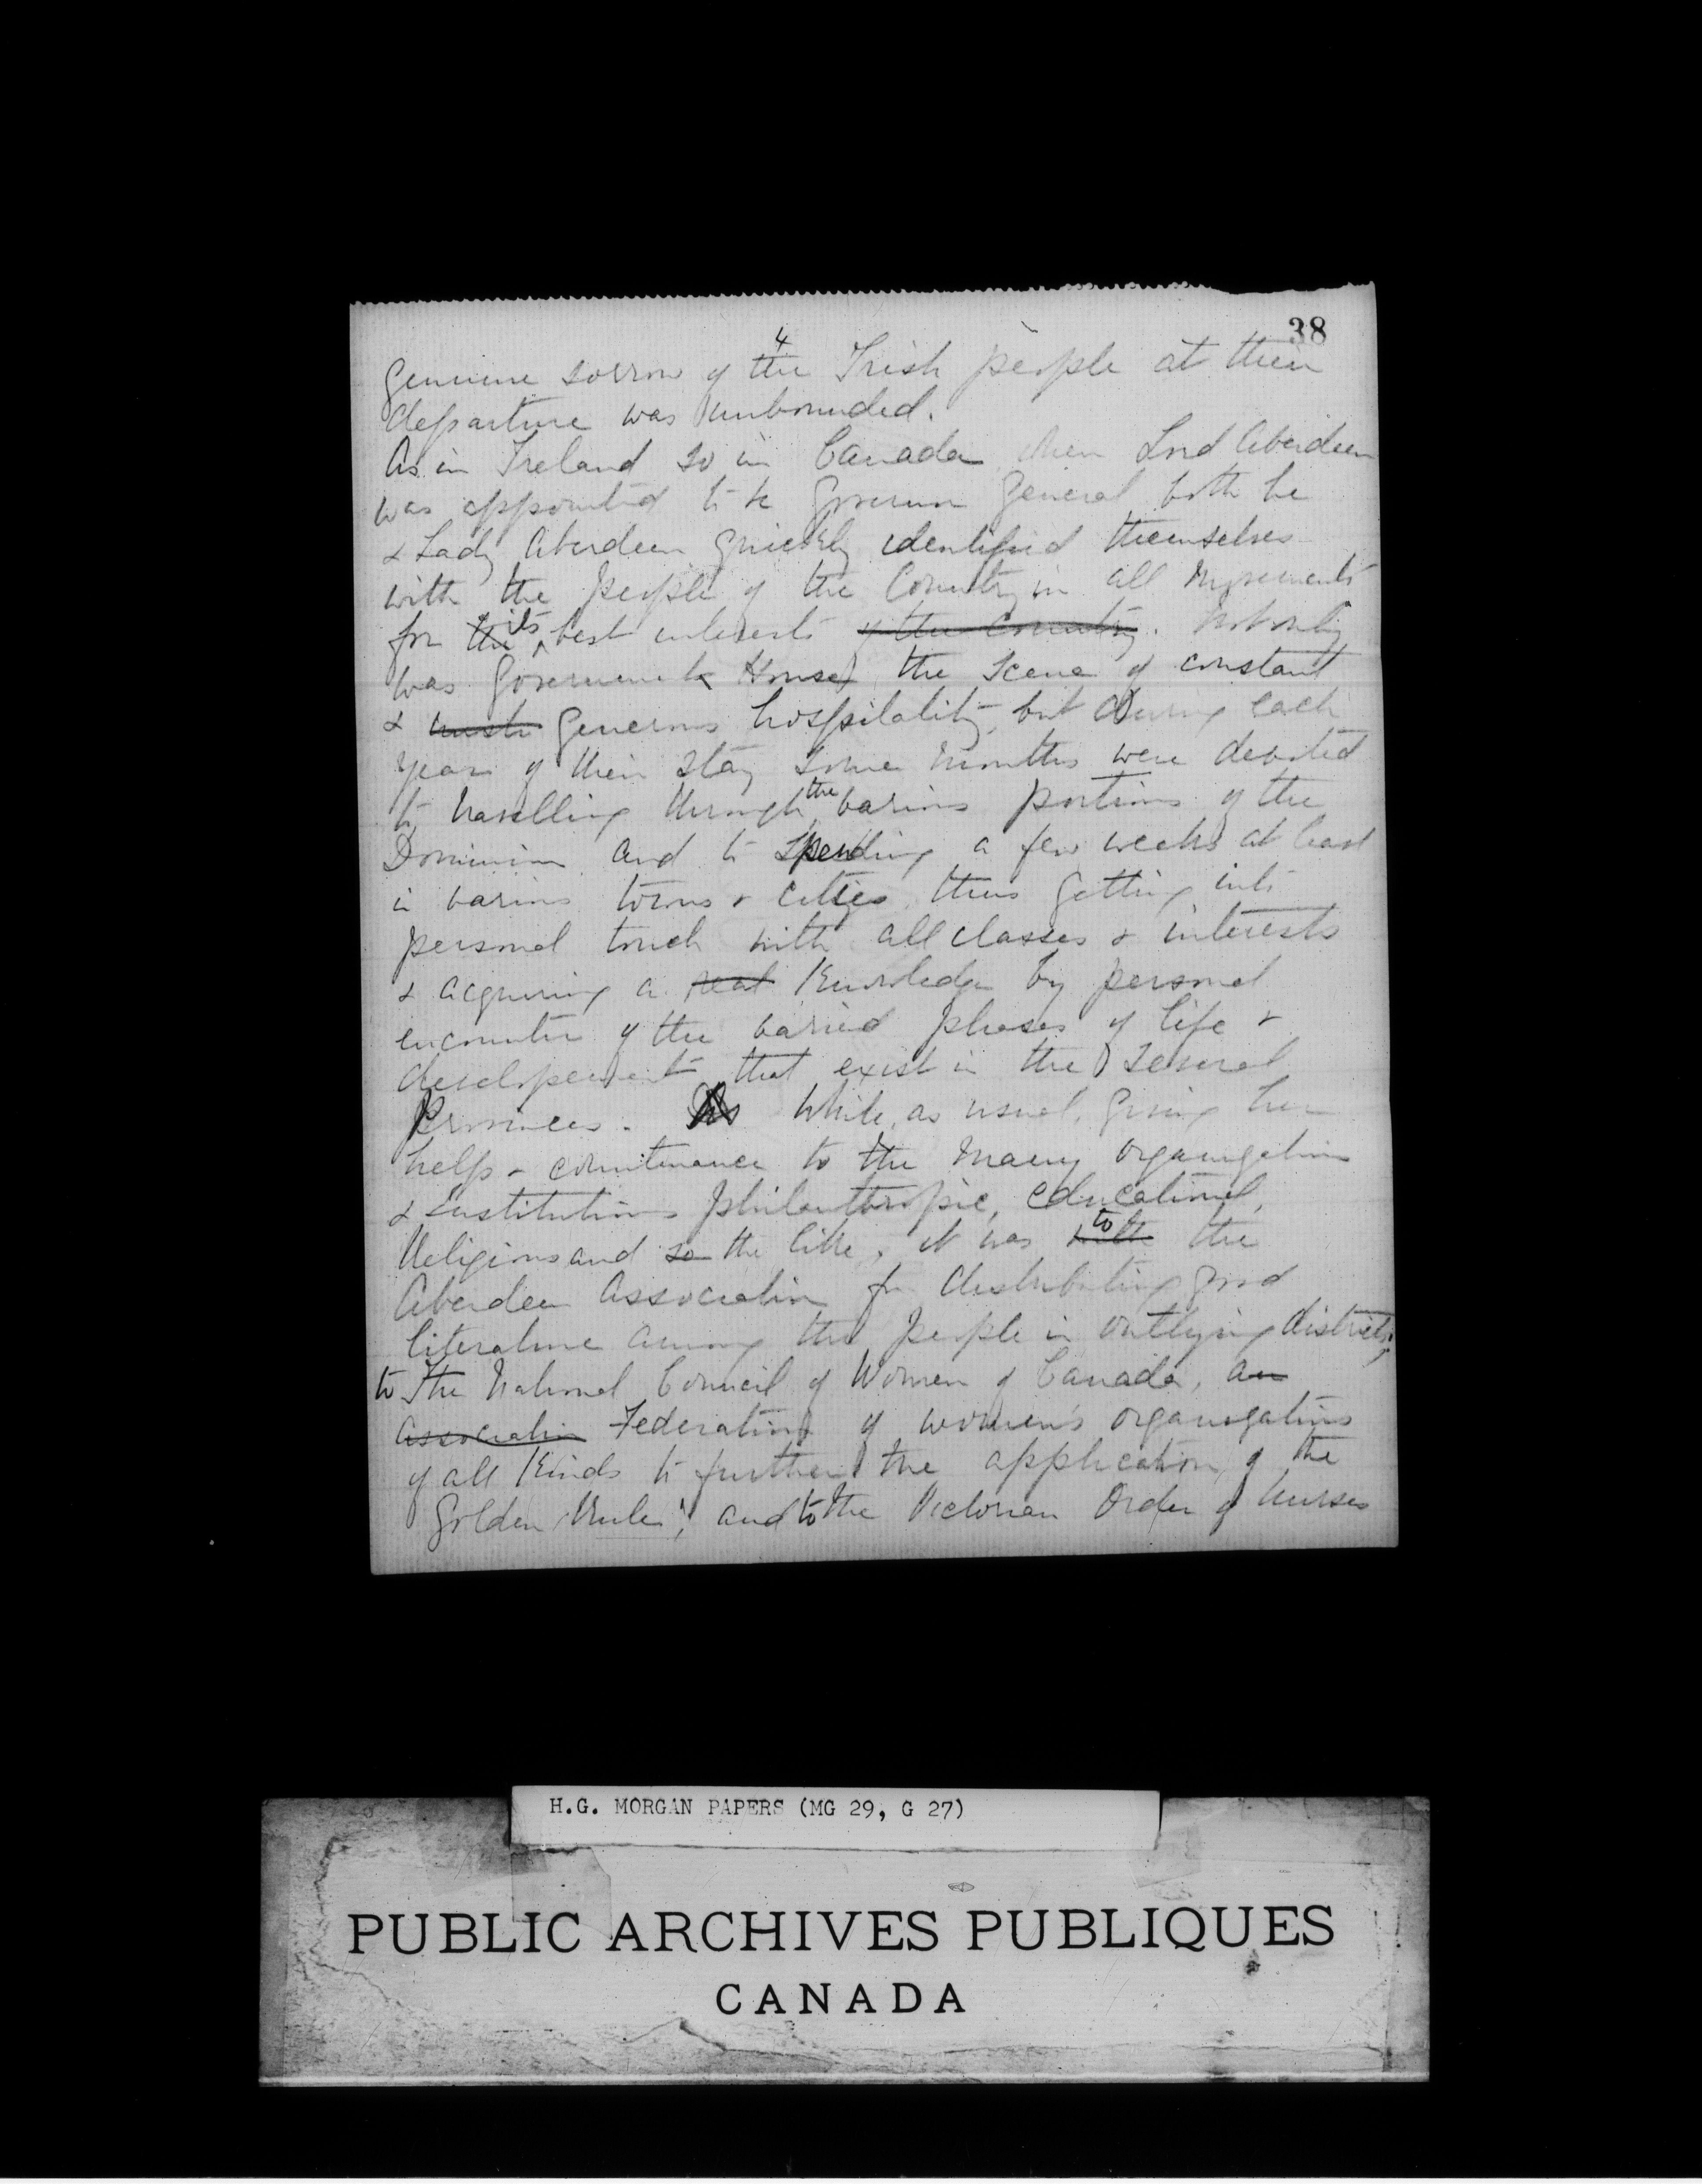 38
4
genuine sorrow of the Irish people at their
departure was unbounded.
As in Ireland so in Canada when Lord Aberdeen
was appointed to be Governor General both he
& Lady Aberdeen quickly identified themselves
with the people of the Country in all movements
for the its best interests of the Country. Not only
was Government House the scene of constant
& generous hospitality, but during each
year of their stay some months were devoted
to travelling through the various portions of the
Dominion and to spending a few weeks at least
in various towns & cities thus getting into
personal touch with all classes & interests
& acquiring a real knowledge by personal
encounter of the varied phases of life &
developement that exist in the several
Provinces. While, as usual, giving her
help & countenance to the many organizations
& institutions philanthropic, educational,
religious and so the like, it was to the
Aberdeen Association for distributing good
literature among the people in outlying districts,
to the National Council of Women of Canada, an
association Federation of women's organizations
of all kinds to further the application of the
Golden Rule", and to the Victorian Order of Nurses
H.G. MORGAN PAPERS (MG 29, G 27)
PUBLIC ARCHIVES PUBLIQUES
CANADA